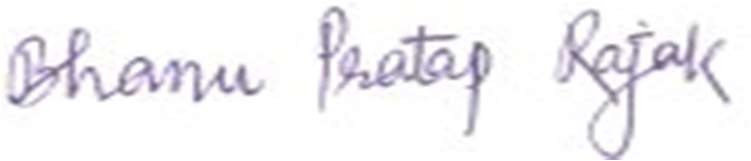 Bhanu Pratap Rajak